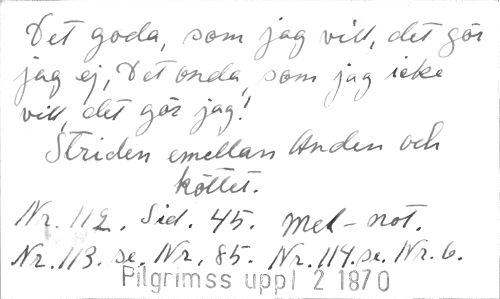 Det goda, som jag vill, det gör
jag ej, Det onda, som jag icke
vill, det gör jag!
Striden emellan Anden och
köttet.
Nr. 112. Sid. 45. Mel-not.
Nr. 113. se. Nr. 85. Nr. 114. se. Nr. 6.
Pilgrimss uppl 2 1870